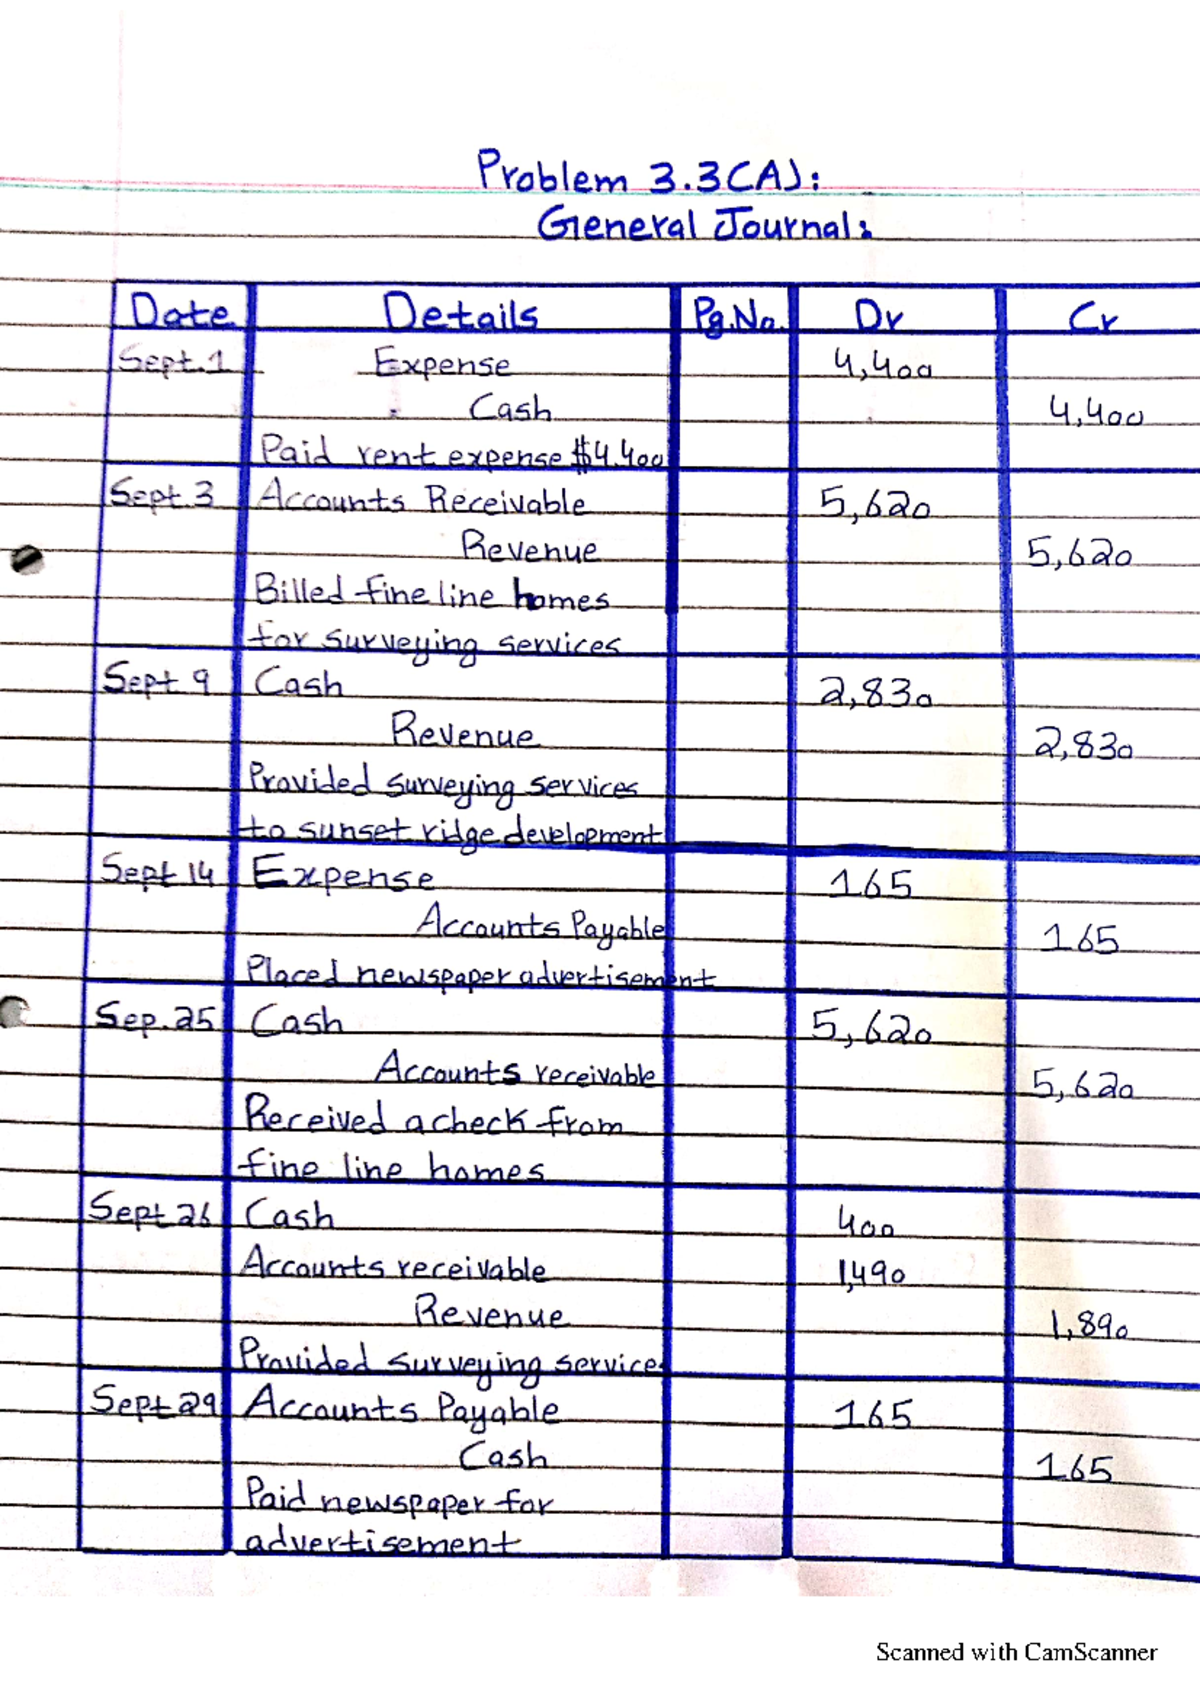 Problem 3.3(A):
General Journal:
Date Details Pg.No. Dr Cr
Sept.1 Expense 4,400
Cash 4,400
Paid rent expense $4.400
Sept.3 Accounts Receivable 5,620
Revenue 5,620
Billed fine line homes
for surveying services
Sept 9 Cash 2,830
Revenue 2,830
Provided surveying services
to sunset ridge development
Sept 14 Expense 165
Accounts Payable 165
Placed newspaper advertisement
Sep.25 Cash 5,620
Accounts receivable 5,620
Received a check from
fine line homes
Sept 26 Cash 400
Accounts receivable 1,490
Revenue 1,890
Provided surveying services
Sept 29 Accounts Payable 165
Cash 165
Paid newspaper for
advertisement
Scanned with CamScanner